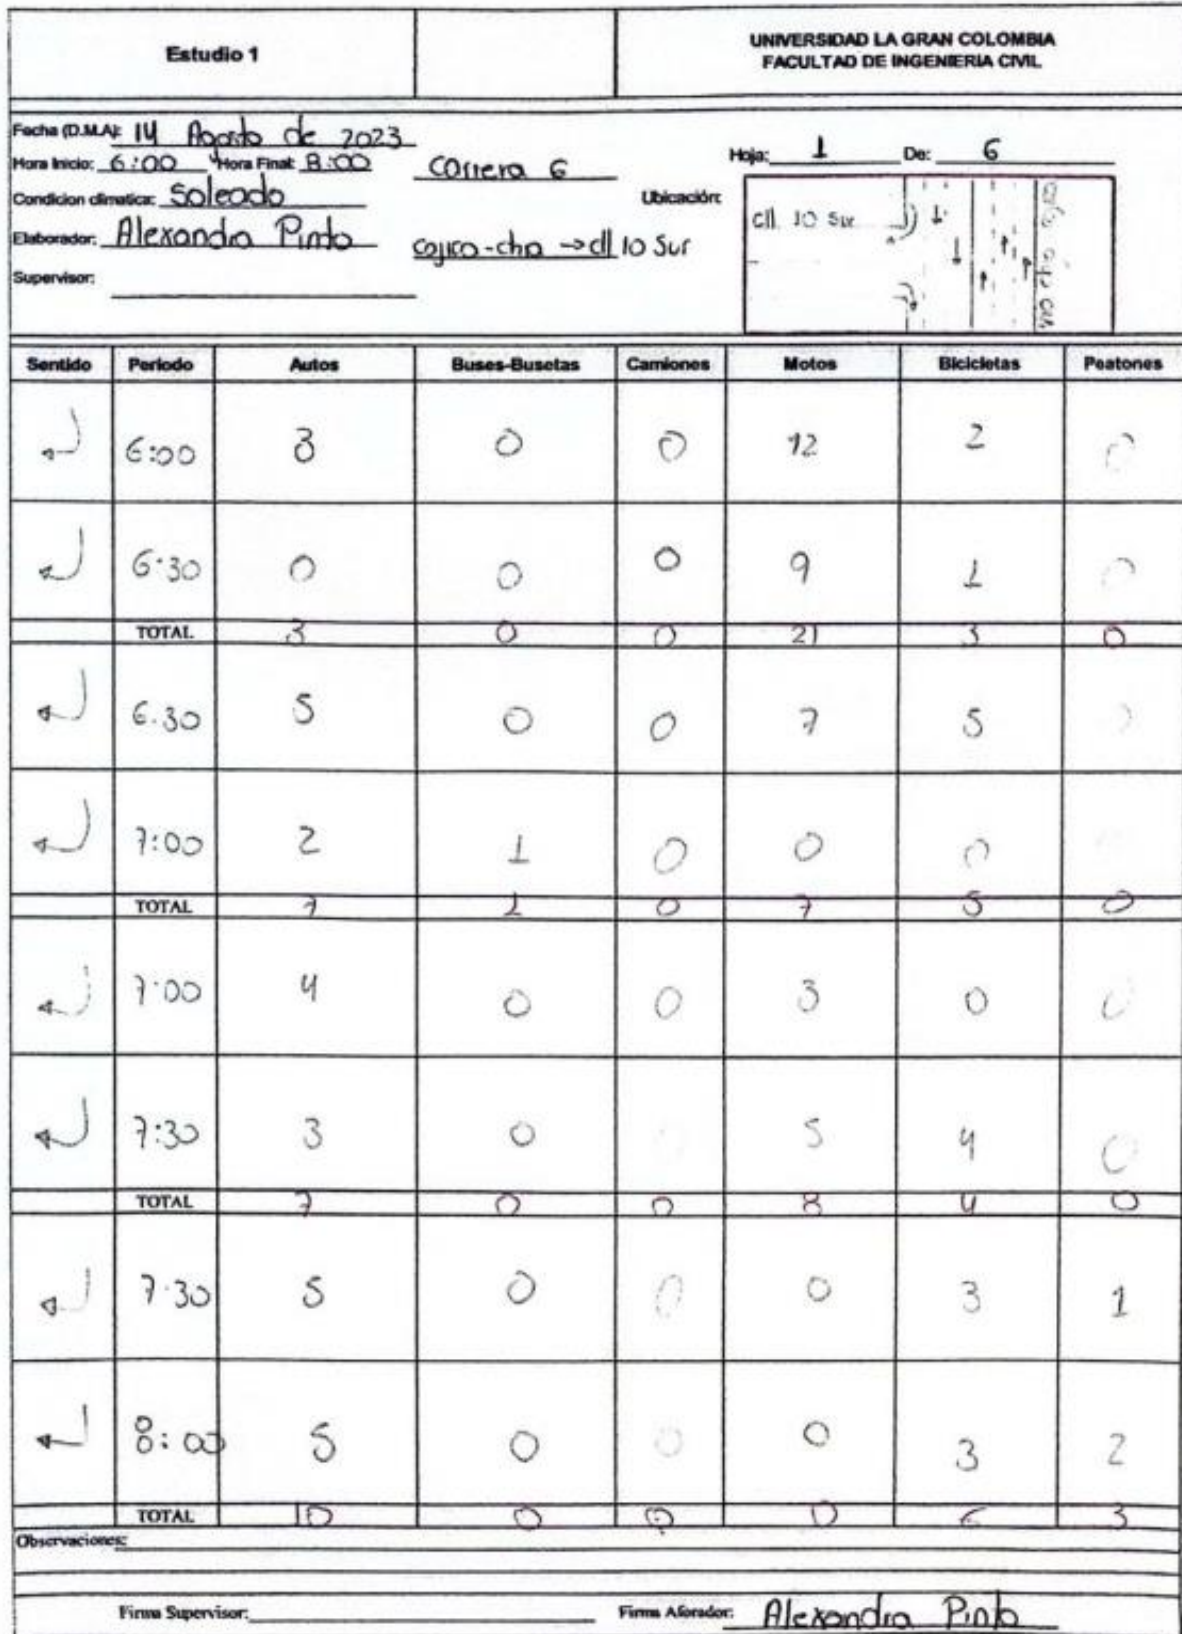 Estudio 1
UNIVERSIDAD LA GRAN COLOMBIA
FACULTAD DE INGENIERIA CIVIL
Fecha (D.M.A): 14 Agosto de 2023
Hora Inicio: 6:00 Hora Final: 8:00
Carrera 6
Hoja: 1 De: 6
Condicion climatica: Soleado
Ubicación:
Elaborador: Alexandra Pinto
cajica-chia → cll 10 Sur
Supervisor:
cll. 10 Sur
Sentido Periodo Autos Buses-Busetas Camiones Motos Bicicletas Peatones
6:00 3 0 0 12 2 0
6:30 0 0 0 9 1 0
TOTAL 3 0 0 21 3 0
6:30 5 0 0 7 5 0
7:00 2 1 0 0 0
TOTAL 7 1 0 7 5 0
7:00 4 0 0 3 0 0
7:30 3 0 0 5 4 0
TOTAL 7 0 0 8 4 0
7:30 5 0 0 0 3 1
8:00 5 0 0 0 3 2
TOTAL 10 0 0 0 6 3
Observaciones:
Firma Supervisor: Firma Aforador: Alexandra Pinto